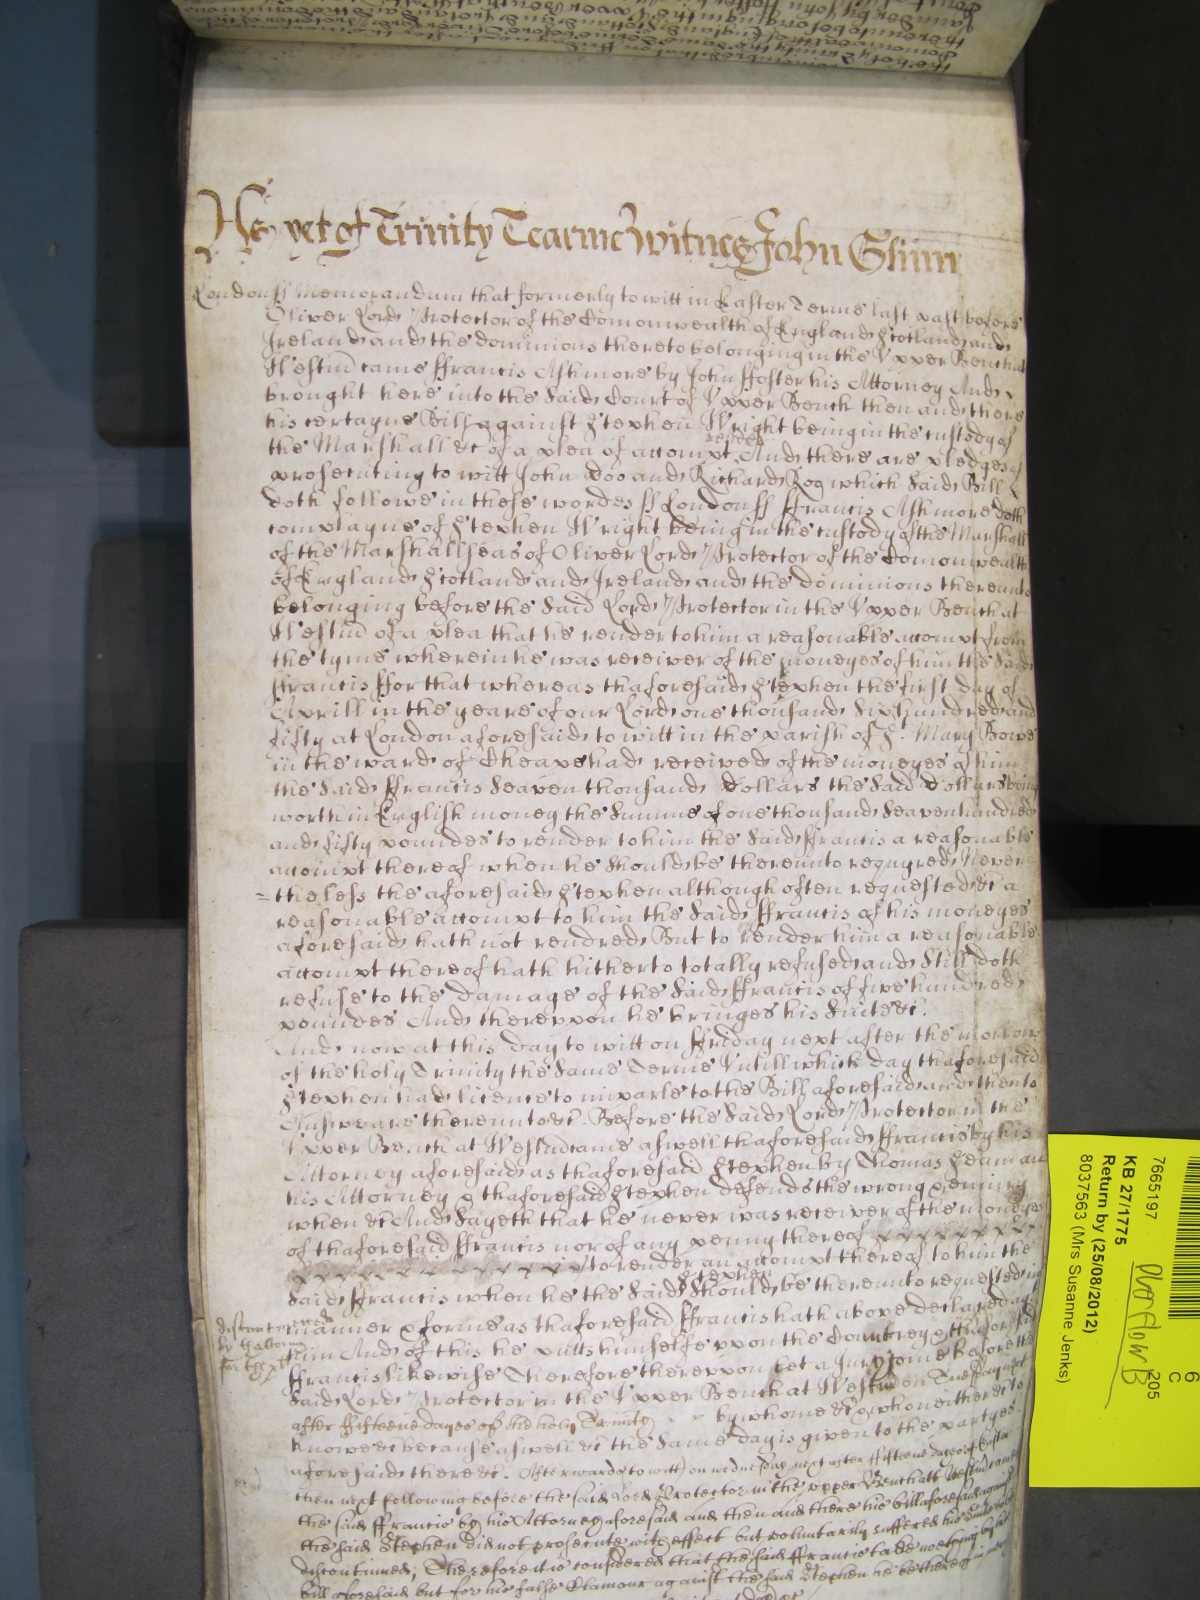 As yet of Trinity Tearme Witnes John Glinn
Londonss Memorandum that formerly to witt in Easter Terme last past before
Oliver Lord Protector of the Comonwealth of England Scotland and
Ireland and the dominions thereto belonging in the Upper Bench at
Westm came Ffrancis Askmore by John Ffoster his Attorney And
brought here into the said Court of Upper Bench then and there
his certayne Bill against Stephen Wright being in the custody of
the Marshall &c of a plea of accompt render And there are pledges of
prosecuting to witt John Doo and Richard Roo which said Bill
doth followe in these wordes ss Londonss Ffrancis Askmore doth
complayne of Stephen Wright being in the custody of the Marshall
of the Marshallseas of Oliver Lord Protector of the Comonwealth
of England Scotland and Ireland and the dominions thereunto
belonging before the said Lord Protector in the Upper Bench at
Westm of a plea that he render to him a reasonable accompt from
the tyme wherein he was receiver of the moneyes of him the said
Ffrancis Ffor that whereas thaforesaid Stephen the first day of
Aprill in the yeare of our Lord one thousand six hundred and
fifty at London aforesaid to witt in the parish of St Mary Bowe
in the ward of Cheape had received of the moneyes of him
the said Ffrancis seaven thousand Dollars the said Dollars being
worth in English money the summe of one thousand seaven hundred
and fifty poundes to render to him the said Ffrancis a reasonable
accompt thereof when he should be thereunto requyred Never
=theless the aforesaid Stephen although often requested &c a
reasonable accompt to him the said Ffrancis of his moneyes
aforesaid hath not rendred But to render him a reasonable
accompt thereof hath hitherto totally refused and still doth
refuse to the damage of the said Ffrancis of five hundred
poundes And thereuppon he bringes his suite &c.
And now at this day to witt on Ffriday next after the morrow
of the holy Trinity the same Terme Untill which day thaforesaid
Stephen had licence to imparle to the Bill aforesaid and then to
Answeare thereunto &c. Before the said Lord Protector in the
Upper Bench at Westm came aswell thaforesaid Ffrancis by his
Attorney aforesaid as thaforesaid Stephen by Thomas Seaman
his Attorney & thaforesaid Stephen defends the wrong & injury
when &c And sayeth that he never was receiver of the moneyes
of thaforesaid Ffrancis nor of any penny thereof
to render an accompt thereof to him the
said Ffrancis when he the said Stephen should be thereunto requested in
manner & forme as thaforesaid Ffrancis hath above declared agt
him And of this he putts himselfe uppon the Countrey & thaforesaid
Ffrancis likewise Therefore thereuppon let a Jury come before the
said Lord Protector in the Upper Bench at Westm on Tuesday next
after Ffifteene dayes of the holy Trinity by whome &c & who neither &c to
knowe &c because aswell &c the same day is given to the partyes
aforesaid there &c. Afterwards to witt on wednesday next after ffifteene dayes of Easter
then next following before the said Lord Protector in the upper Bench att Westm came
the said Ffrancis by his Attorney aforesaid and then and there his bill aforesaid against
the said Stephen did not prosecute with effect but voluntarily suffered his suite to be
discontinued, Therefore it is considered that the said Ffrancis take nothing by his
bill aforesaid but for his false Clamour against the said Stephen he be thereof in mercy
7665197
KB 27/1775
Return by (25/08/2012)
8037563 (Mrs Susanne Jenks)
Overflow B
6
C
205